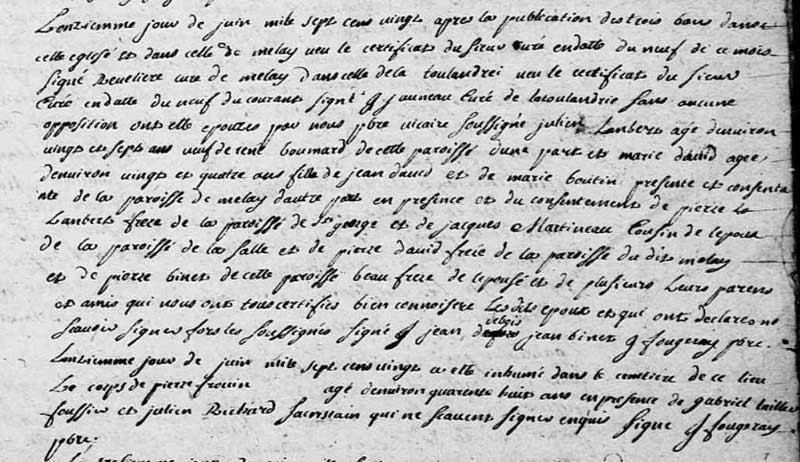 Lonziemme jour de juin mile sept cens vingt apres la publication des trois bans dans
cette eglise et dans celle de melay veu le certificat du sieur curé en datte du neuf de ce mois
signé Reveliere curé de melay dans celle de la toulandrei veu le certificat du sieur
Curé en datte du neuf du courant signé g jauneau Curé de latoulandrie sans aucune
opposition ont esté epouses par nous pbre vicaire soussigné julien Lanbert agé denviron
vingt et sept ans veuf de rené boumard de cette paroisse dune part et marie david agee
denviron vingt et quatre ans fille de jean david et de marie boutin presente et consenta
nte de la paroisse de melay dautre part en presence et du consentement de pierre
Lanbert frere de la paroisse de St george et de jacques Martineau Cousin de lepoux
de la paroisse de la salle et de pierre david frere de la paroisse du dit melay
et de pierre binet de cette paroisse beau frere de lepousé et de plusieurs Leurs parens
et amis qui nous ont tous certifiés bien connoistre Les dits epoux et qui ont declaré ne
scavoir signer fors les soussignés signé g jean jean binet g fougeray pbre.
Lonziemme jour de juin mile sept cens vingt a esté inhumé dans le cimetiere de ce lieu
Le corps de pierre frouin agé denviron quarente huit ans en presence de gabriel taillee
fossier et julien Richard sacristain qui ne scavent signer enquis signé g fougeray
pbre.